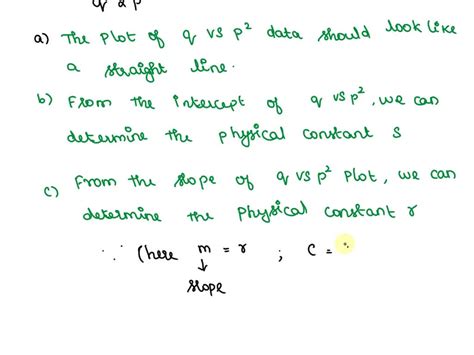 q & p
a) The plot of q vs p² data should look like
a straight line.
b) From the intercept of q vs p², we can
determine the physical constant s
c) From the slope of q vs p² plot, we can
determine the physical constant r
∵ (here m = r ; c =
↓
slope